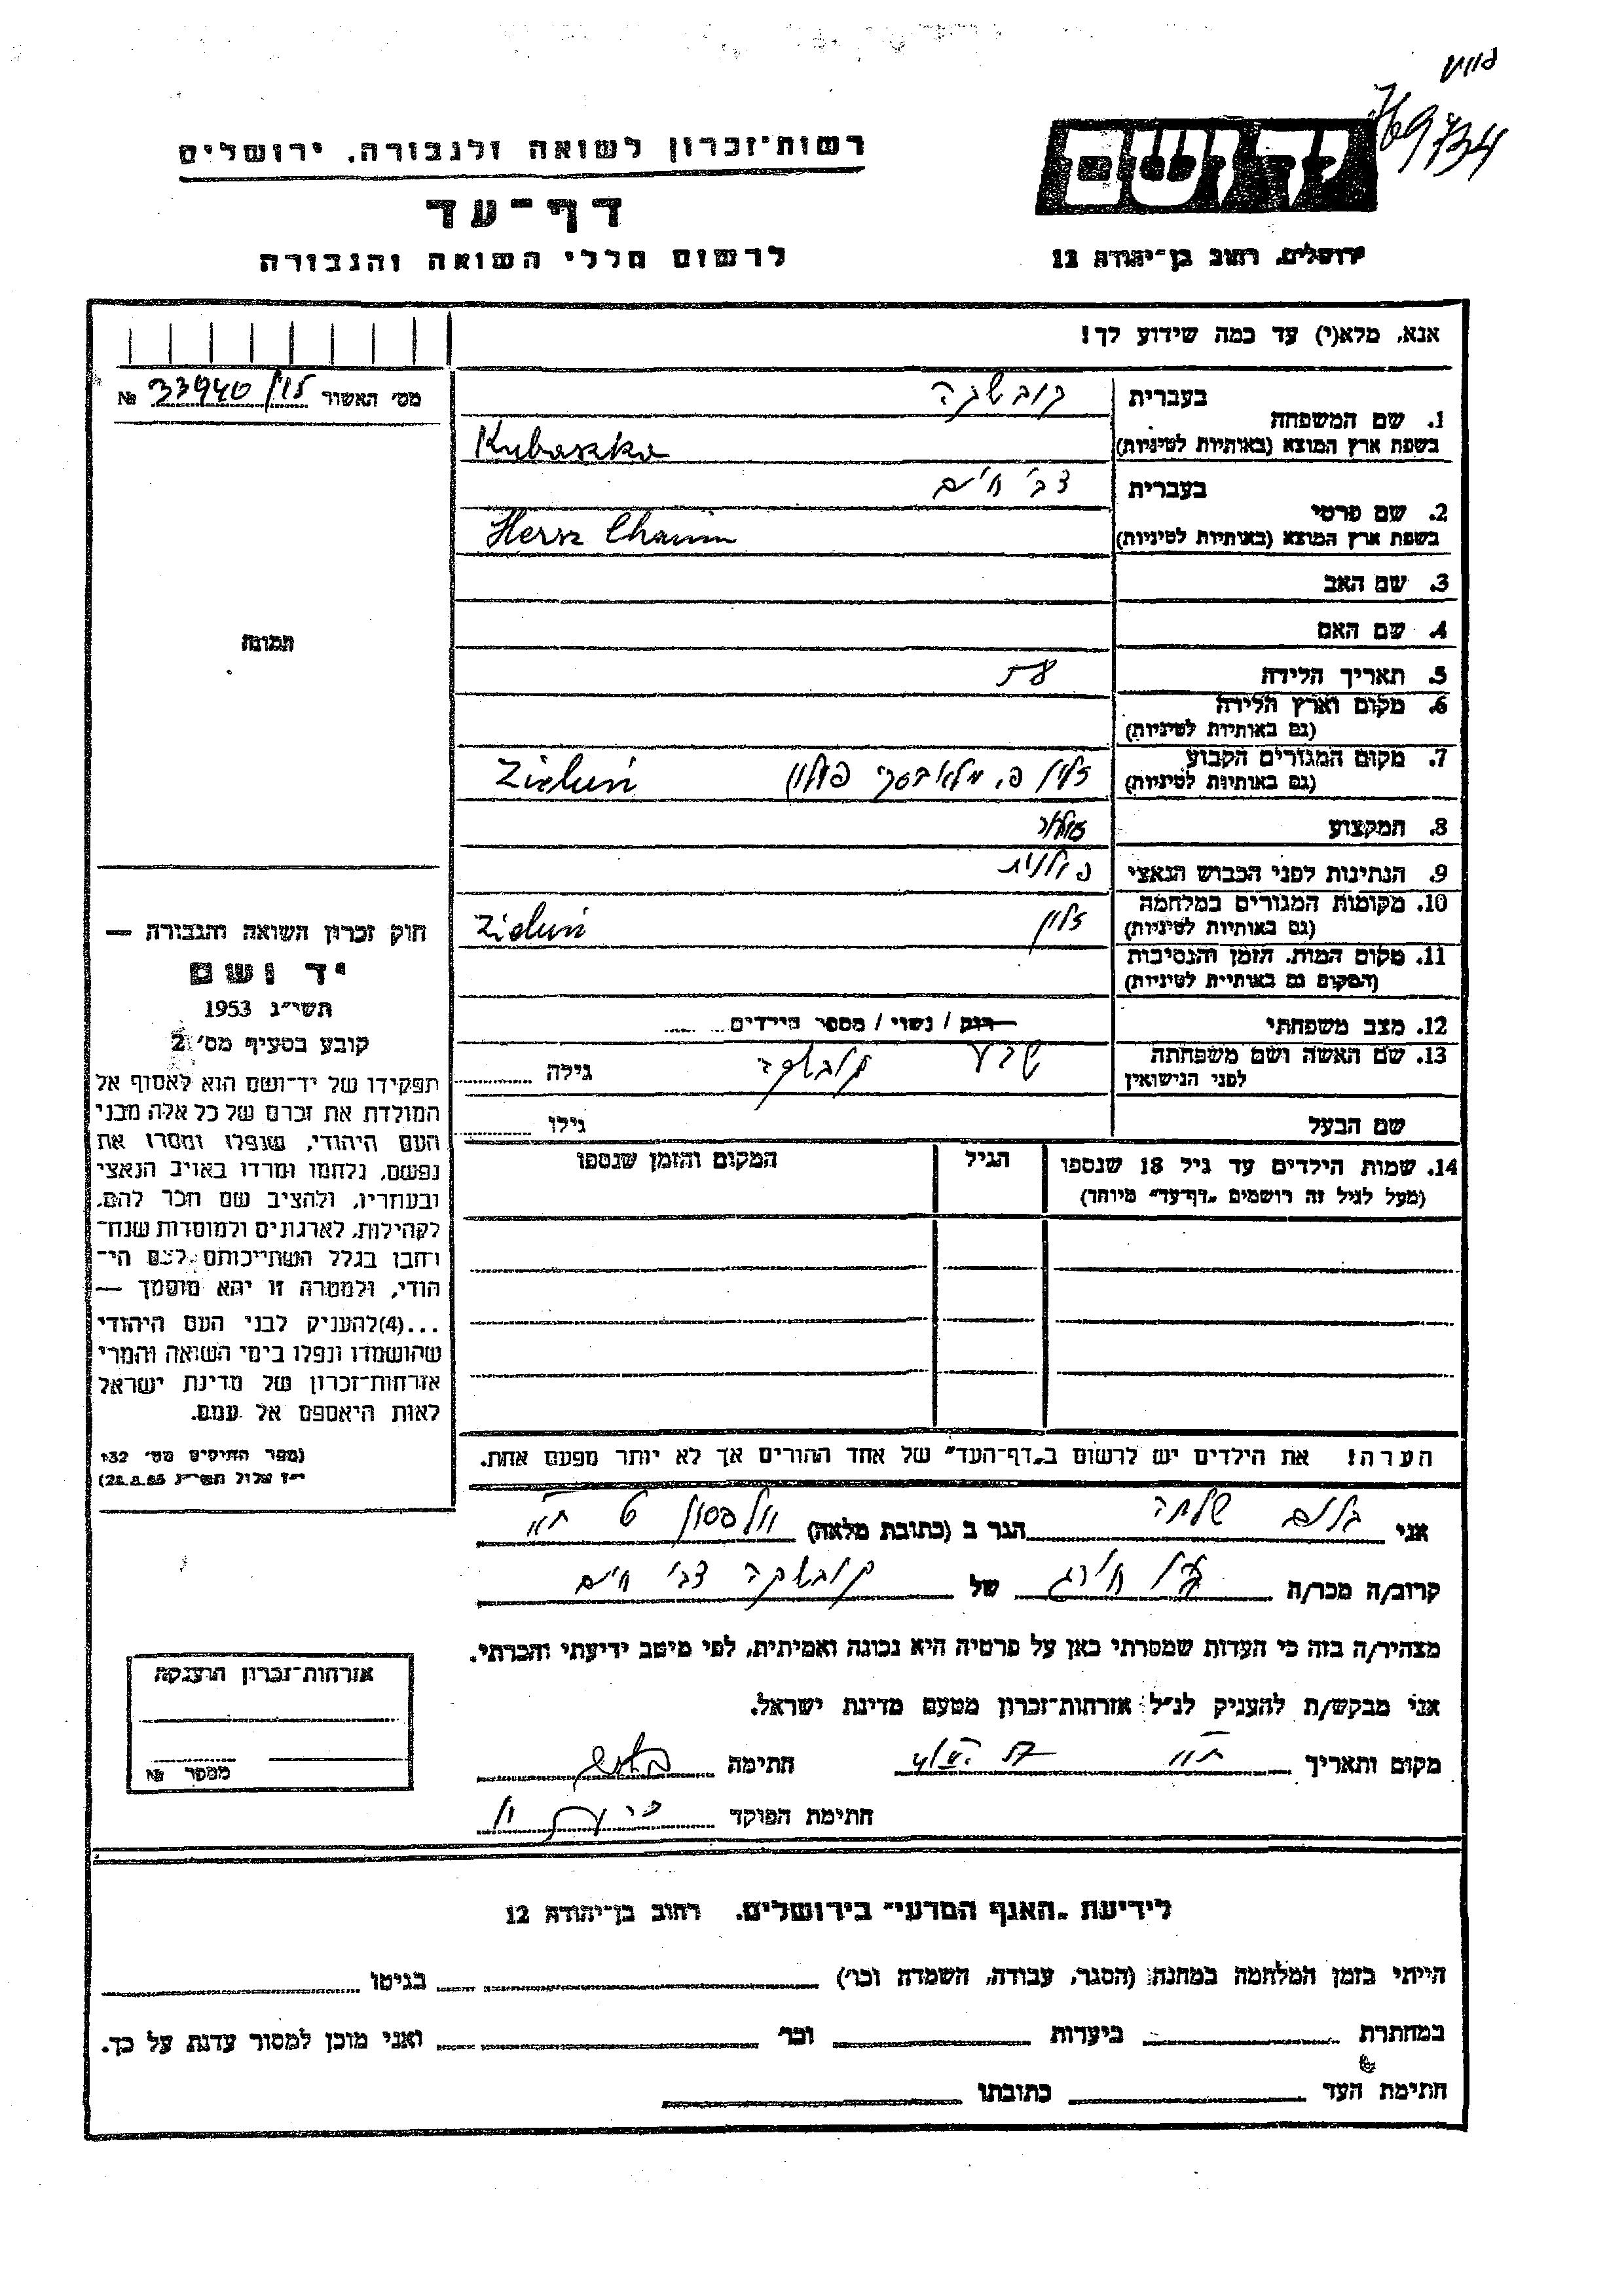 769734
רשות־זכרון לשואה ולגבורה, ירושלים
דף־עד
לרשום חללי השואה והגבורה
יד ושם
ירושלים, רחוב בן־יהודה 12
אנא, מלא(י) עד כמה שידוע לך!
מס׳ האשור 33940 №
1. שם המשפחה
בעברית קובשקה
בשפת ארץ המוצא (באותיות לטיניות) Kubaszka
2. שם פרטי
בעברית צבי חיים
בשפת ארץ המוצא (באותיות לטיניות) Hersz Chaim
3. שם האב
4. שם האם
5. תאריך הלידה
6. מקום וארץ הלידה
(גם באותיות לטיניות)
7. מקום המגורים הקבוע
(גם באותיות לטיניות) פולין Zieluń
8. המקצוע
9. הנתינות לפני הכבוש הנאצי פולנית
10. מקומות המגורים במלחמה
(גם באותיות לטיניות) זלון Zieluń
11. מקום המות, הזמן והנסיבות
(המקום גם באותיות לטיניות)
12. מצב משפחתי רווק / נשוי / מספר הילדים
13. שם האשה ושם משפחתה
לפני הנישואין קובשקה גילה
שם הבעל גילו
14. שמות הילדים עד גיל 18 שנספו
(מעל לגיל זה רושמים „דף־עד״ מיוחד)
הגיל
המקום והזמן שנספו
הערה! את הילדים יש לרשום ב„דף־העד״ של אחד ההורים אך לא יותר מפעם אחת.
תמונה
חוק זכרון השואה והגבורה —
יד ושם
תשי״ג 1953
קובע בסעיף מס׳ 2
תפקידו של יד־ושם הוא לאסוף אל
המולדת את זכרם של כל אלה מבני
העם היהודי, שנפלו ומסרו את
נפשם, נלחמו ומרדו באויב הנאצי
ובעוזריו, ולהציב שם וזכר להם,
לקהילות, לארגונים ולמוסדות שנח־
רחבו בגלל השתייכותם לעם הי־
הודי, ולמטרה זו יהא מוסמך —
...(4) להעניק לבני העם היהודי
שהושמדו ונפלו בימי השואה והמרי
אזרחות־זכרון של מדינת ישראל
לאות היאספם אל עמם.
(ספר החוקים מס׳ 132
י״ז אלול תשי״ג 28.8.53)
אני בלום הגר ב (כתובת מלאה) וולפסון
קרוב/ה מכר/ה של קובשקה צבי חיים
מצהיר/ה בזה כי העדות שמסרתי כאן על פרטיה היא נכונה ואמיתית, לפי מיטב ידיעתי והכרתי.
אני מבקש/ת להעניק לנ״ל אזרחות־זכרון מטעם מדינת ישראל.
מקום ותאריך חתימה
חתימת הפוקד
אזרחות־זכרון הוענקה
מספר №
לידיעת „האגף המדעי״ בירושלים, רחוב בן־יהודה 12
הייתי בזמן המלחמה במחנה (הסגר, עבודה, השמדה וכו׳) בגיטו
במחתרת ביערות וכו׳ ואני מוכן למסור עדות על כך.
חתימת העד כתובתו